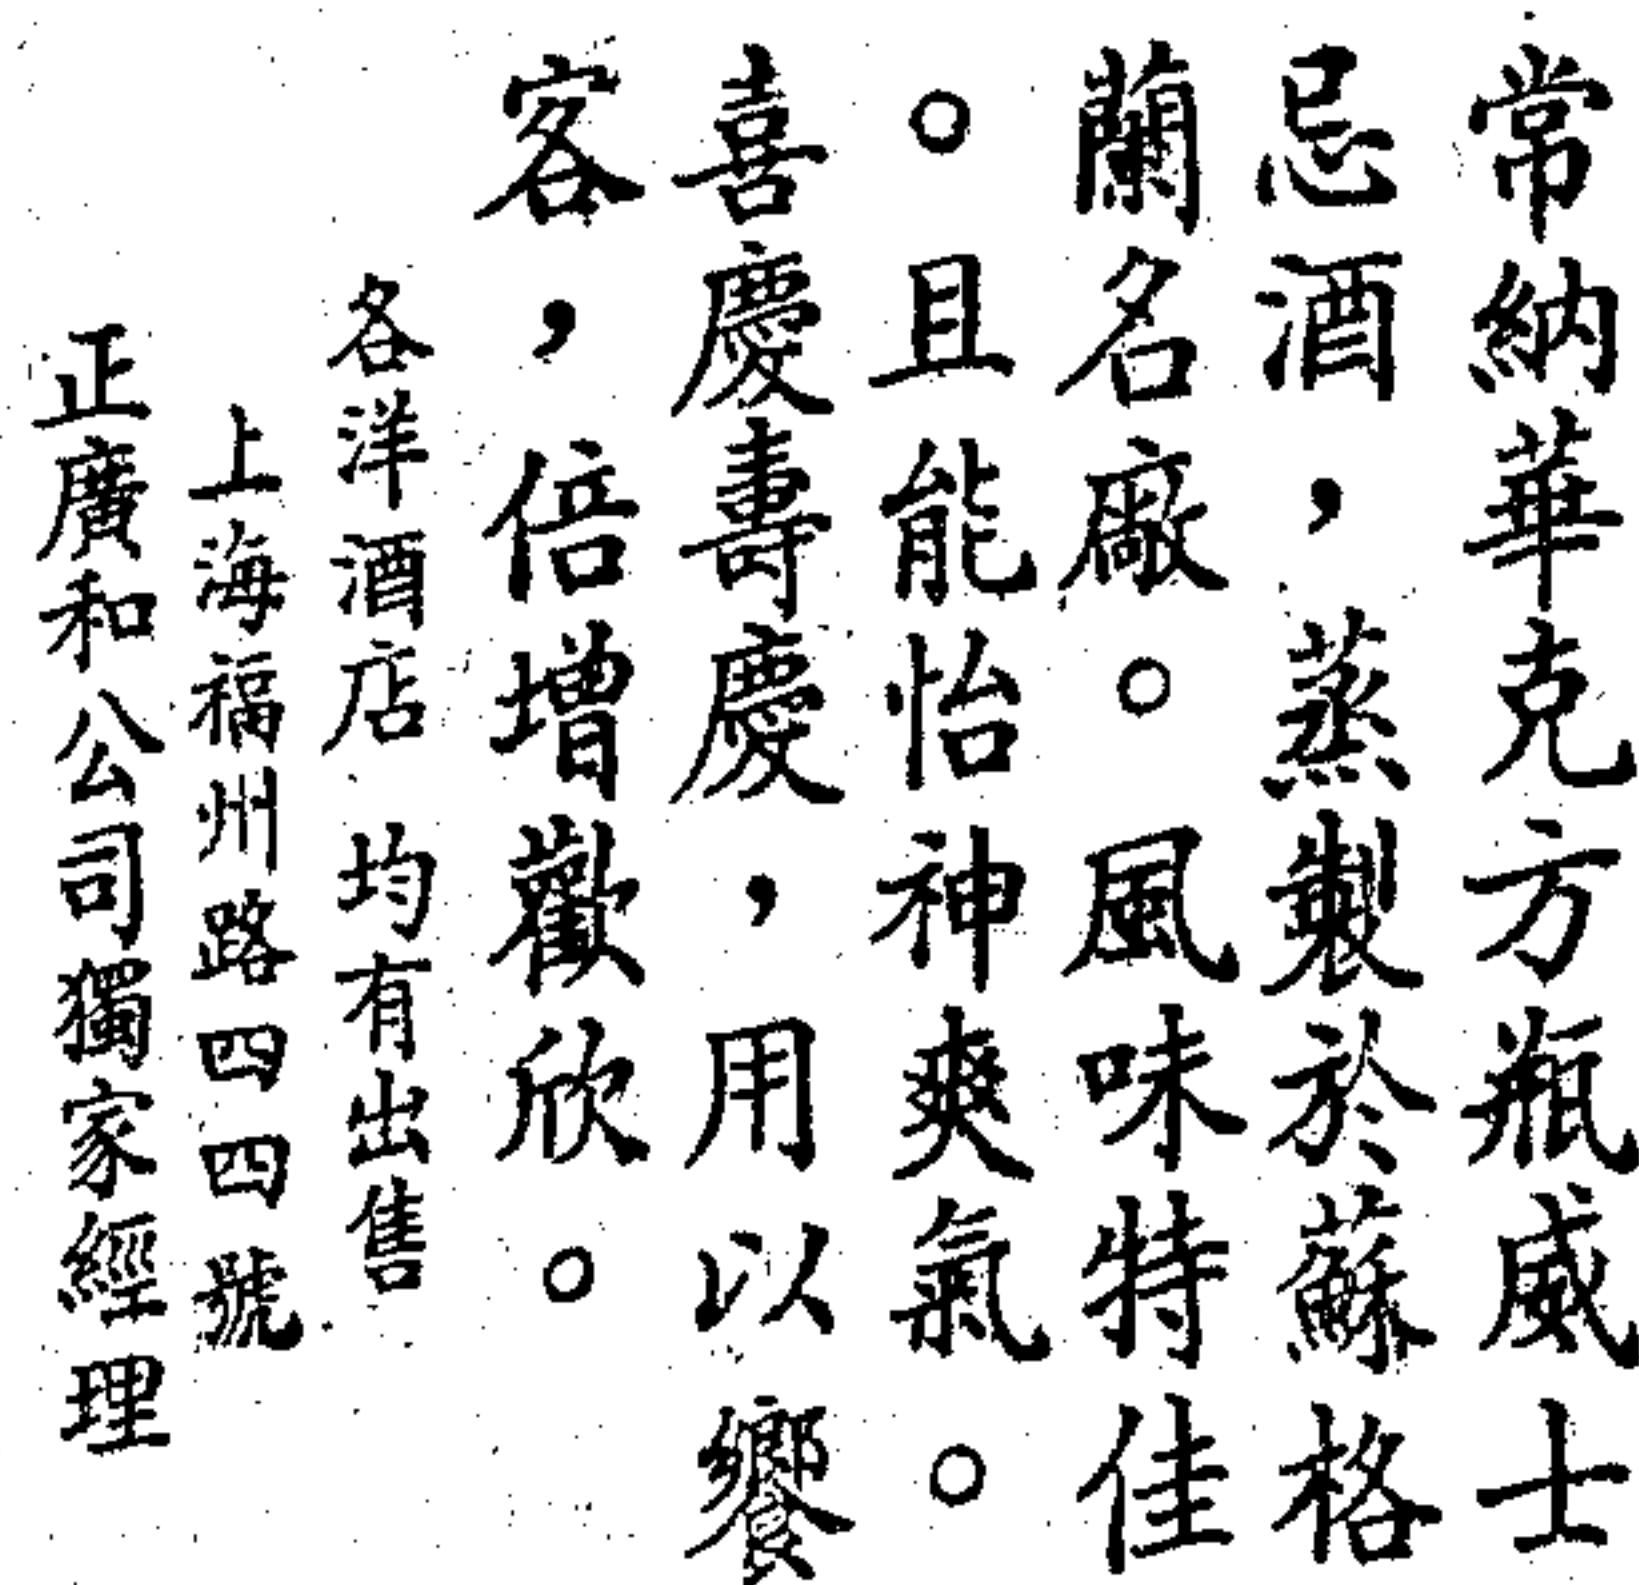 常納華克方瓶威士
忌酒，蒸製於蘇格
蘭名廠。風味特佳
。且能怡神爽氣。
喜慶壽慶，用以饗
客，倍增歡欣。
各洋酒店 均有出售
上海福州路四四號
正廣和公司獨家經理